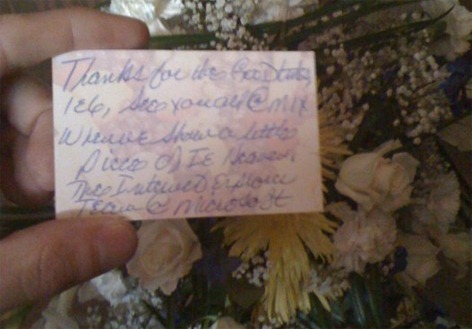 Thanks for the Good times,
IE6, see you all @ MIX
When we show a little
Piece of IE Heaven.
The Internet Explorer
Team @ Microsoft